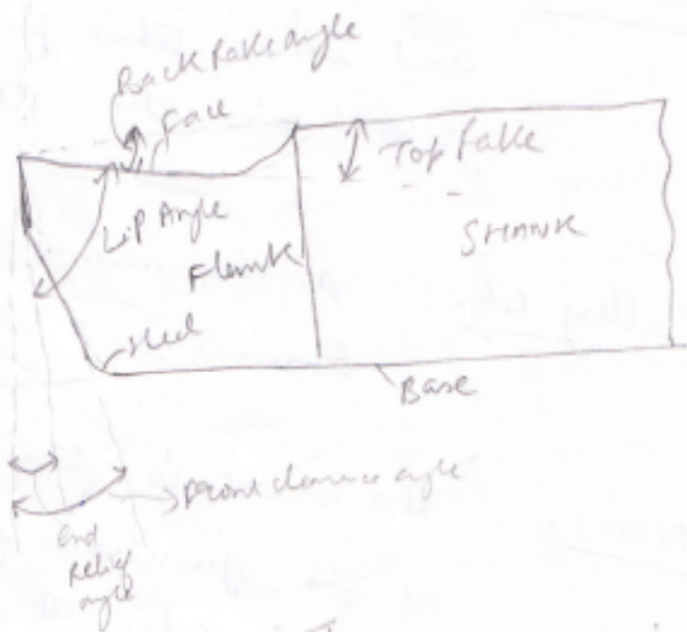 Back Rake angle
Face
Top Rake
Lip Angle
SHANK
Flank
Heel
Base
Front clearance angle
End
Relief
angle